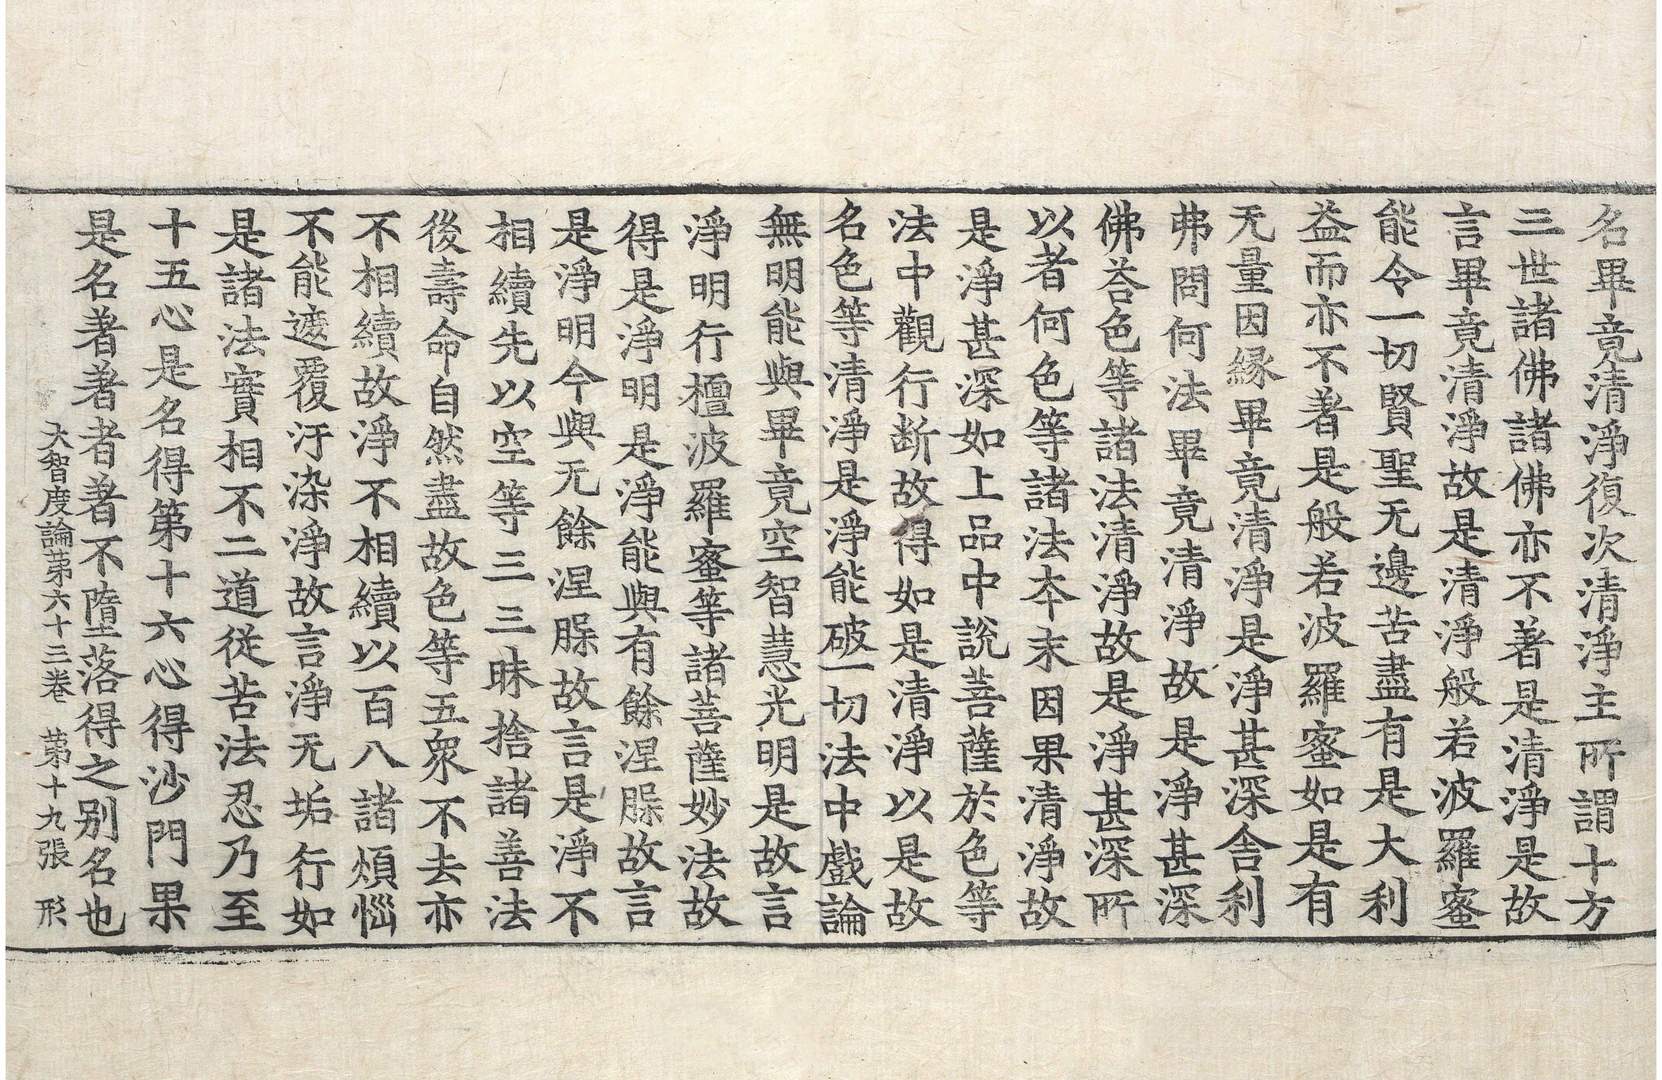 名畢竟清淨復次清淨主所謂十方
三世諸佛諸佛亦不著是清淨是故
言畢竟清淨故是清淨般若波羅蜜
能令一切賢聖无邊苦盡有是大利
益而亦不著是般若波羅蜜如是有
无量因緣畢竟清淨是淨甚深舍利
弗問何法畢竟清淨故是淨甚深
佛荅色等諸法清淨故是淨甚深所
以者何色等諸法夲末因果清淨故
是淨甚深如上品中說菩薩於色等
法中觀行断故得如是清淨以是故
名色等清淨是淨能破一切法中戲論
無明能與畢竟空智慧光明是故言
淨明行檀波羅蜜等諸菩薩妙法故
得是淨明是淨能與有餘涅槃故言
是淨明今與无餘涅槃故言是淨不
相續先以空等三三昧捨諸善法
後壽命自然盡故色等五衆不去亦
不相續故淨不相續以百八諸煩惱
不能遮覆汙染淨故言淨无垢行如
是諸法實相不二道従苦法忍乃至
十五心是名得第十六心得沙門果
是名著著者著不墮落得之别名也
大智度論苐六十三卷 苐十九張 形